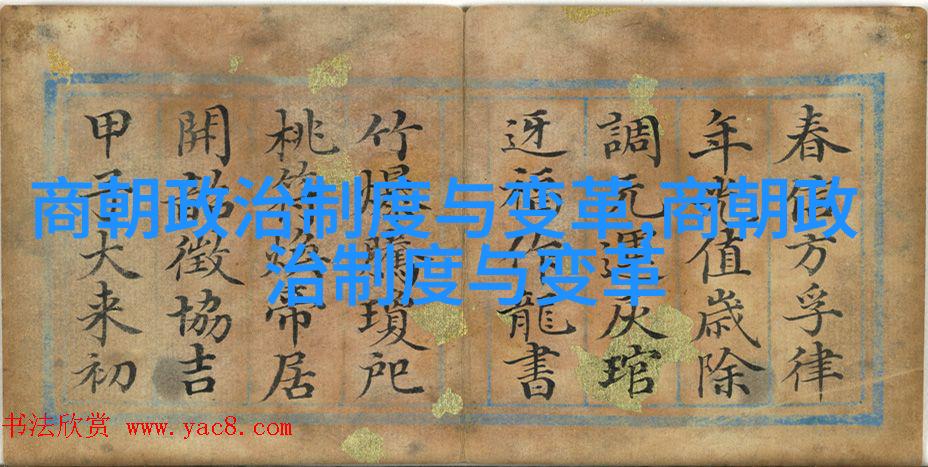 商朝政治制度与变革,商朝政
治制度与变革
春信方孚律
年光值歲除
調元遇灰琯
迓福作龍書
竹爆瑣
桃符煥帝居
開韶徵協吉
甲子大来初
书法欣赏 www.yac8.com